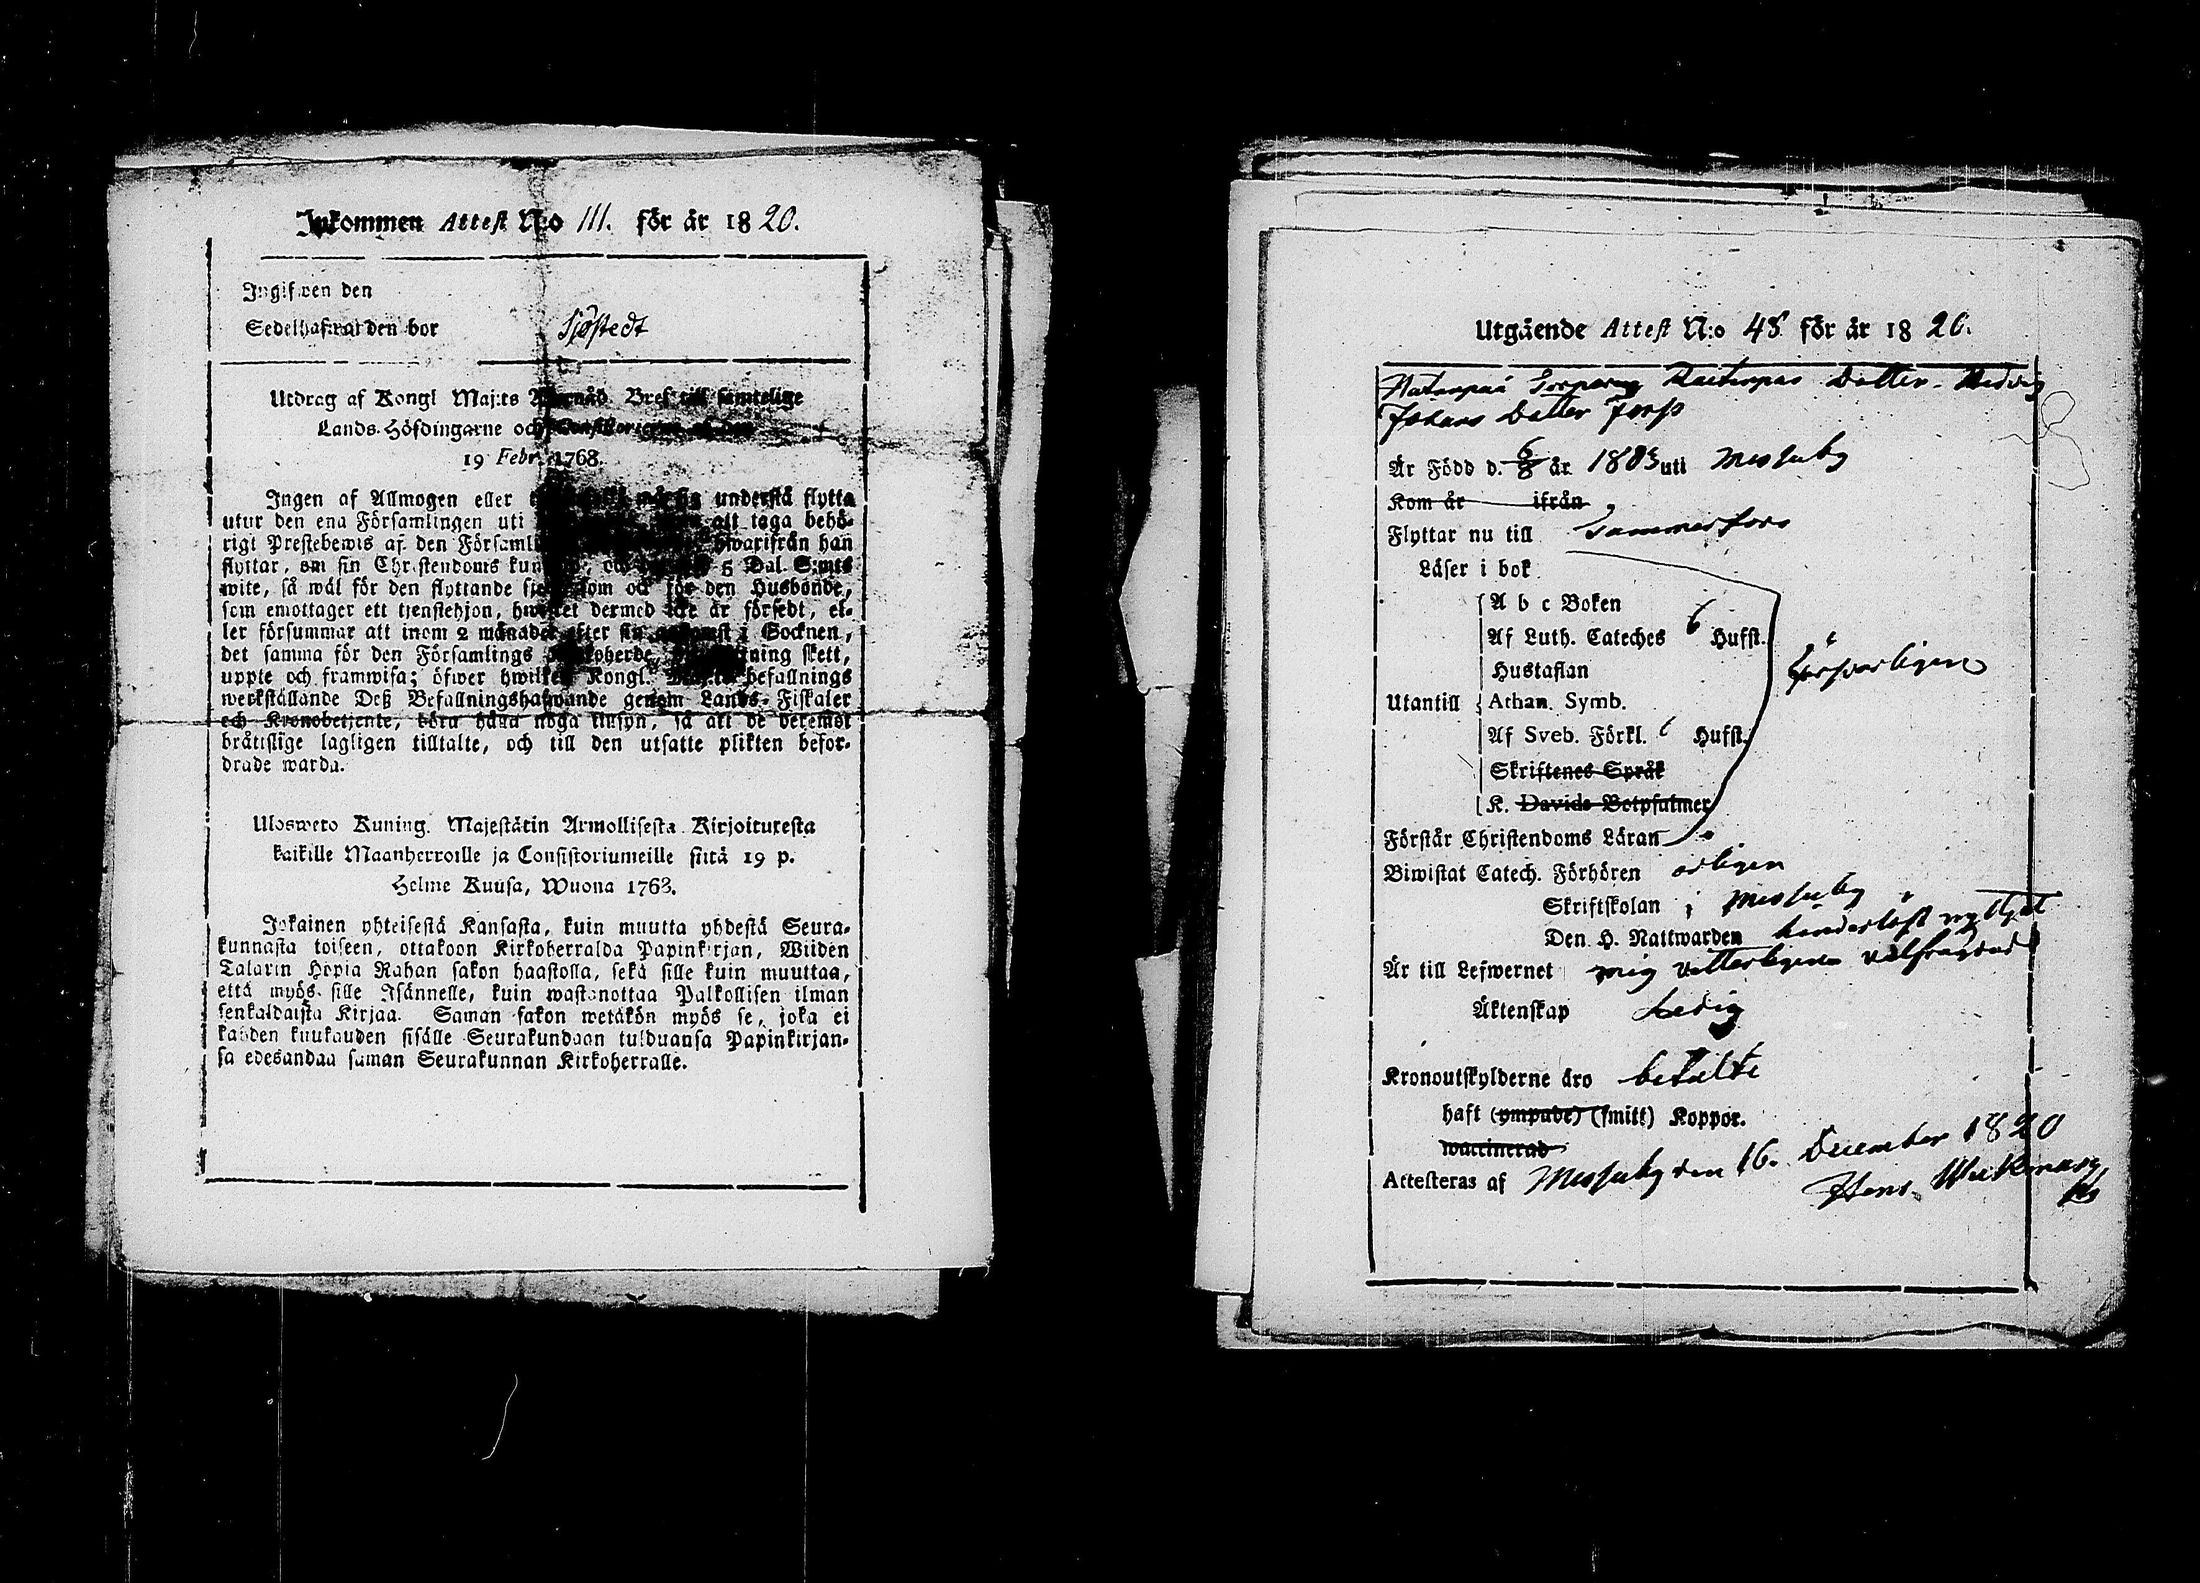 Inkommen Attest N:o 111. för år 1820.
Ingifwen den
Sedelhafwanden bor Sjöstedt
Utdrag af Kongl Maj:ts Bref till samtelige
Lands-Höfdingarne och
19 Febr. 1768.
Ingen af Allmogen eller understå flytta
utur den ena Församlingen uti att taga behö-
rigt Prestebewis af den hwarifrån han
flyttar, om sin Christendoms 5 Dal. S:mts
wite, så wäl för den flyttande som ock för den Husbonde,
som emottager ett tjenstehjon, dermed icke är försedt, el-
ler försummar att inom 2 månader efter sin i Socknen,
det samma för den Församlings skett,
uppte och framwisa; öfwer hwilket Kongl. Maj:ts befallnings
werkställande Deß Befallningshafwande genom Lands-Fiskaler
och Kronobetjente, böra hafwa noga insyn, så att de deremot
bråttslige lagligen tilltalte, och till den utsatte plikten befor-
drade warda.
Uloswero Kuning. Majestätin Armollisesta Kirjoituresta
kaikille Maanherroille ja Consistoriumeille siitä 19 p.
Helme Kuusa, Wuona 1768.
Jokainen yhteisestä Kansasta, kuin muutta yhdestä Seura-
kunnasta toiseen, ottakoon Kirkoherralda Papinkirjan, Wiiden
Talarin Hopia Rahan sakon haastolla, sekä sille kuin muuttaa,
että myös sille Isännelle, kuin wastanottaa Palkollisen ilman
senkaldaista Kirjaa. Saman sakon wetäkön myös se, joka ei
kahden kuukauden sisälle Seurakundaan tulduansa Papinkirjan-
sa edesandaa saman Seurakunnan Kirkoherralle.
Utgående Attest N:o 48 för år 1820.
Dotter Hedvig
Johans Dotter
Är Född d. 6/8 år 1803 uti Messuby
Kom år ifrån
Flyttar nu till Tammerfors
Läser i bok
A b c Boken
Af Luth. Cateches 6 Hufst.
Hustaflan
försvarligen
Utantill Athan. Symb.
Af Sveb. Förkl. 6 Hufst.
Skriftenes Språk
K. Davids Botpsalmer
Förstår Christendoms Läran
Biwistat Catech. Förhören årligen
Skriftskolan i Messuby
Den H. Nattwarden hinderlöst nyttjat
Är till Lefwernet mig vitterligen välfrägdad
Äktenskap Ledig
Kronoutskylderne äro betalte
haft (ympade) (smitt) Koppor.
waccinerad
Attesteras af Messuby den 16. December 1820